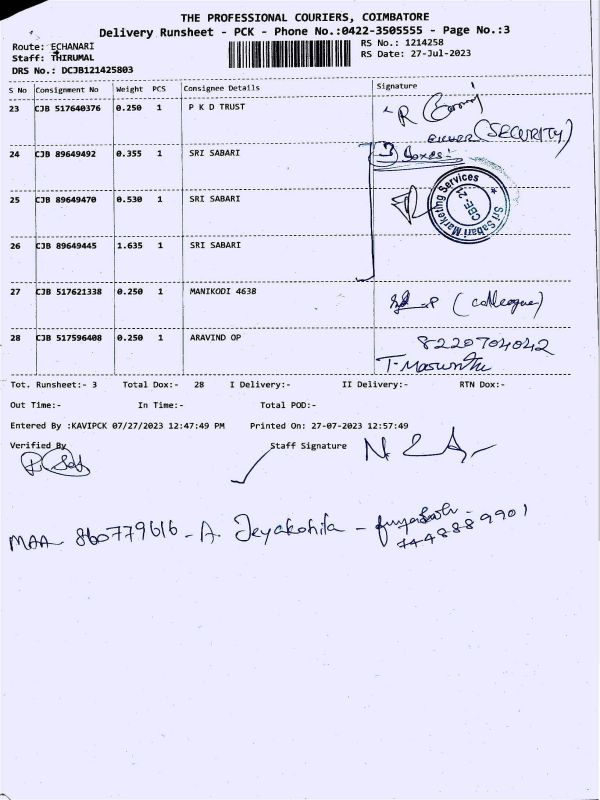 THE PROFESSIONAL COURIERS, COIMBATORE
Delivery Runsheet - PCK - Phone No.:0422-3505555 - Page No.:3
Route: ECHANARI
RS No.: 1214258
Staff: THIRUMAL
RS Date: 27-Jul-2023
DRS No.: DCJB121425803
S No Consignment No Weight PCS Consignee Details Signature
23 CJB 517640376 0.250 1 P K D TRUST
(SECURITY)
24 CJB 89649492 0.355 1 SRI SABARI 3 Boxes:-
25 CJB 89649470 0.530 1 SRI SABARI
Sri Sabari Marketing Services
CBE-21
26 CJB 89649445 1.635 1 SRI SABARI
27 CJB 517621338 0.250 1 MANIKODI 4638 (colleague)
28 CJB 517596408 0.250 1 ARAVIND OP 8220704042
Tot. Runsheet:- 3 Total Dox:- 28 I Delivery:- II Delivery:- RTN Dox:-
Out Time:- In Time:- Total POD:-
Entered By :KAVIPCK 07/27/2023 12:47:49 PM Printed On: 27-07-2023 12:57:49
Verified By Staff Signature
MAA 860779616 - A. Jeyakohila -
7448889901